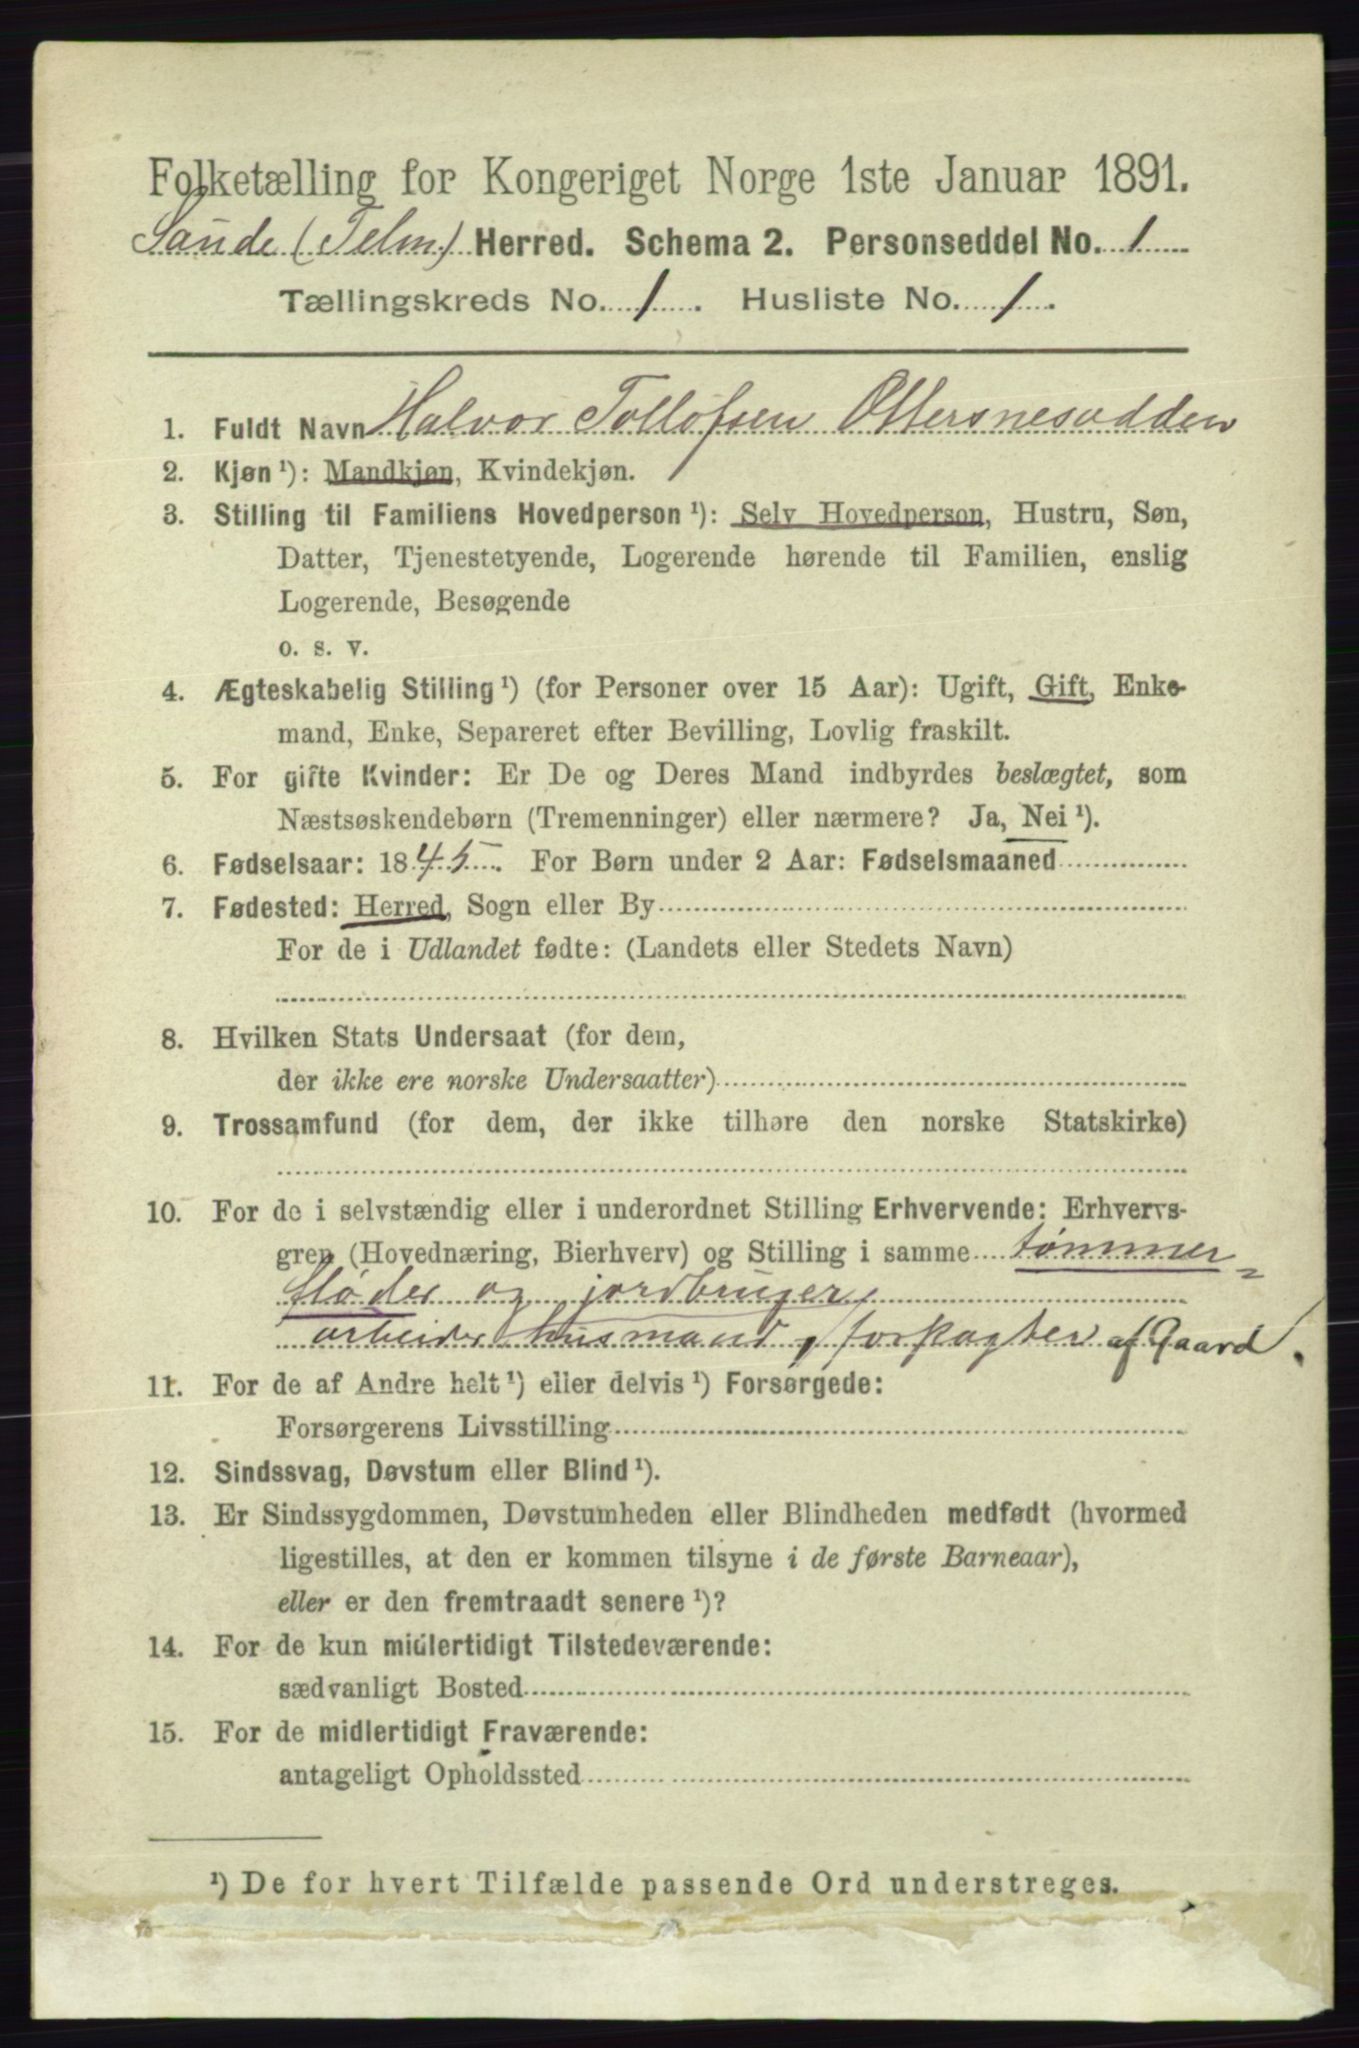 Folketælling for Kongeriget Norge 1ste Januar 1891.
Saude (Telm.) Herred. Schema 2. Personseddel No. 1
Tællingskreds No. 1. Husliste No. 1.
1. Fuldt Navn Halvor Tollofsen Ottersnesodden
2. Kjøn¹): Mandkjøn, Kvindekjøn.
3. Stilling til Familiens Hovedperson¹): Selv Hovedperson, Hustru, Søn,
Datter, Tjenestetyende, Logerende hørende til Familien, enslig
Logerende, Besøgende
o. s. v.
4. Ægteskabelig Stilling¹) (for Personer over 15 Aar): Ugift, Gift, Enke-
mand, Enke, Separeret efter Bevilling, Lovlig fraskilt.
5. For gifte Kvinder: Er De og Deres Mand indbyrdes beslægtet, som
Næstsøskendebørn (Tremenninger) eller nærmere? Ja, Nei¹).
6. Fødselsaar: 1845. For Børn under 2 Aar: Fødselsmaaned
7. Fødested: Herred, Sogn eller By
For de i Udlandet fødte: (Landets eller Stedets Navn)
8. Hvilken Stats Undersaat (for dem,
der ikke ere norske Undersaatter)
9. Trossamfund (for dem, der ikke tilhøre den norske Statskirke)
10. For de i selvstændig eller i underordnet Stilling Erhvervende: Erhvervs-
gren (Hovednæring, Bierhverv) og Stilling i samme tømmer=
fløder og jordbruger
arbeider husmand, forpagter af Gaard.
11. For de af Andre helt¹) eller delvis¹) Forsørgede:
Forsørgerens Livsstilling
12. Sindssvag, Døvstum eller Blind¹).
13. Er Sindssygdommen, Døvstumheden eller Blindheden medfødt (hvormed
ligestilles, at den er kommen tilsyne i de første Barneaar),
eller er den fremtraadt senere¹)?
14. For de kun midlertidigt Tilstedeværende:
sædvanligt Bosted
15. For de midlertidigt Fraværende:
antageligt Opholdssted
¹) De for hvert Tilfælde passende Ord understreges.